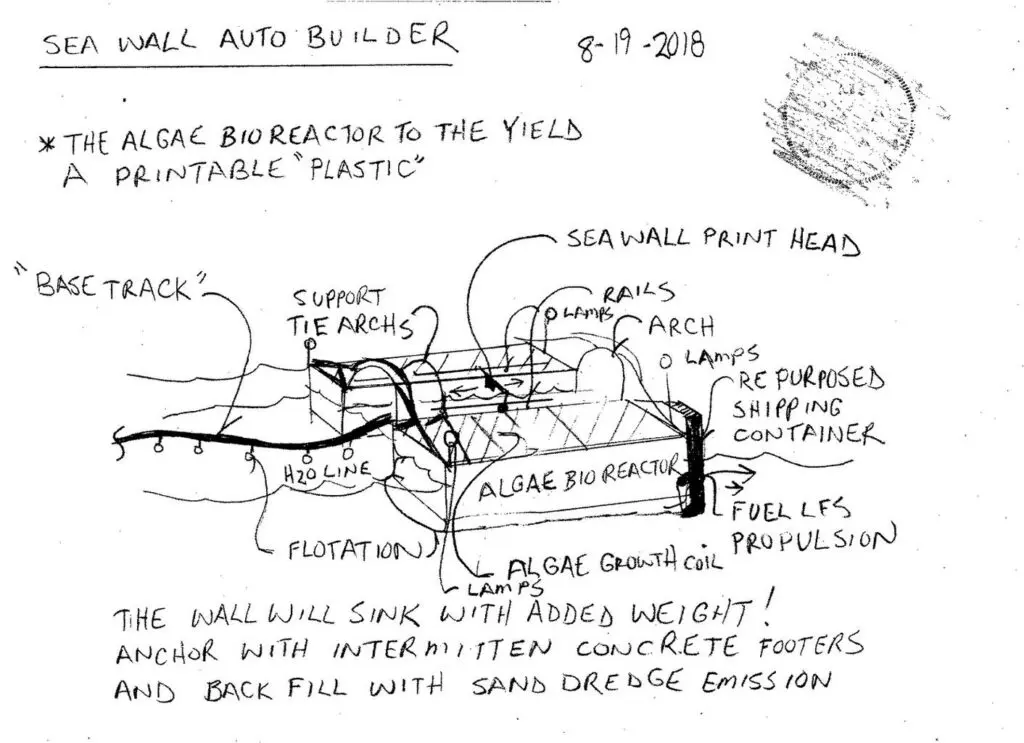 SEA WALL AUTO BUILDER
8-19-2018
* THE ALGAE BIO REACTOR TO THE YIELD
A PRINTABLE "PLASTIC"
SEA WALL PRINT HEAD
"BASE TRACK"
SUPPORT
TIE ARCHS
RAILS
LAMPS
ARCH
LAMPS
REPURPOSED
SHIPPING
CONTAINER
H2O LINE
ALGAE BIO REACTOR
FUEL LFS
PROPULSION
FLOTATION
ALGAE GROWTH COIL
LAMPS
THE WALL WILL SINK WITH ADDED WEIGHT!
ANCHOR WITH INTERMITTEN CONCRETE FOOTERS
AND BACK FILL WITH SAND DREDGE EMISSION